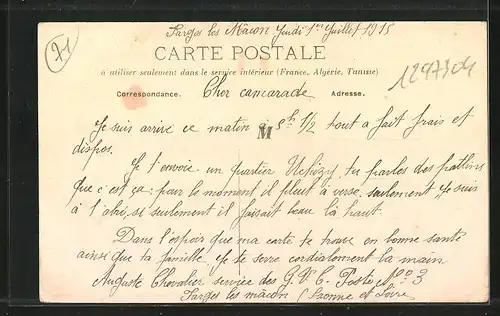 Farges les Macon Jeudi 1er Juillet 1915
71
CARTE POSTALE
à utiliser seulement dans le service intérieur (France, Algérie, Tunisie)
1297304
Correspondance. Cher camarade Adresse.
Je suis arrivé ce matin à 5h 1/2 tout a fait frais et
M
dispos.
Je t'envoie un quartier tu parles des patlins
que c'est ça: pour le moment il pleut à verse, seulement je suis
à l'abri, si seulement il faisait beau là haut.
Dans l'espoir que ma carte te trouve en bonne santé
ainsi que ta famille je te serre cordialement la main
Auguste Chevalier service des G.V.C. Poste No 3
Farges les macon (Saonne et Loire